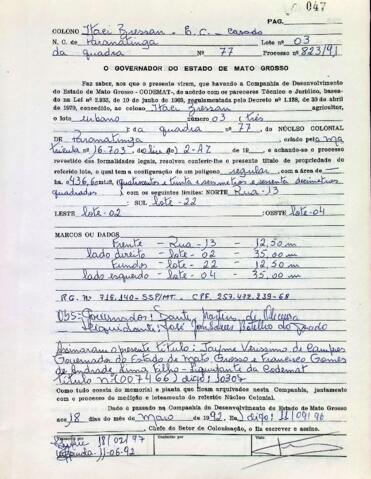 PAG.
047
COLONO Itaci Bressan - B.C. - Casado
N. C. de Paranatinga Lote nº 03
da quadra Nº 77 Processo 823/91
O GOVERNADOR DO ESTADO DE MATO GROSSO
Faz saber, aos que o presente virem, que havendo a Companhia de Desenvolvimento
do Estado de Mato Grosso - CODEMAT-, de acordo com os pareceres Técnico e Jurídico, baseados
na Lei nº 2.933, de 10 de junho de 1969, regulamentada pelo Decreto nº 1.138, de 30 de abril
de 1970, concedido, ao colono Itaci Bressan agricultor,
o lote urbano número 03 (três
) da quadra nº 77. DO NÚCLEO COLONIAL
DE Paranatinga, criado pela Ma
trícula nº 16.703 do livro 2-AZ de 19 , e achando-se o processo
revestido das formalidades legais, resolveu conferir-lhe o presente título de propriedade do
referido lote, o qual tem a configuração de um polígono regular com a área de
436,60m² (quatrocentos e trinta e seis metros e sessenta decímetros
quadrados) com os seguintes limites: NORTE Rua-13
: SUL lote-22
LESTE lote-02 : OESTE lote-04
MARCOS OU DADOS
Frente - Rua-13 - 12,50 m
lado direito - lote-02 - 35,00 m
Fundos - lote-22 - 12,50 m
lado esquerdo - lote-04 - 35,00 m
RG. Nº 718.140-SSP/MT - CPF. 257.472.239-68
OBS: Governador: Dante Martins de Oliveira
Liquidante: José Gonçalves Botelho do Prado
Assinaram o presente título: Jayme Verissimo de Campos
Governador do Estado de Mato Grosso e Francisco Gomes
de Andrade Lima Filho - Liquidante da Codemat
título nº (007466) digo: 10307
Como tudo consta do memorial e planta que ficam arquivados nesta Companhia, juntamente
com o processo de medição e loteamento do referido Núcleo Colonial.
Dado o passado na Companhia de Desenvolvimento do Estado de Mato Grosso
aos 18 dias do mês de maio de 1992. digo: 11/09/96
Eu, Chefe do Setor de Colonização, o escrever e assino.
18/02/97
11-06-92